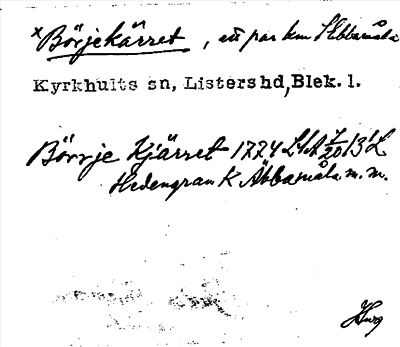 ×Börjekärret, ett par km S Ebbamåla
Kyrkhults sn, Listers hd, Blek. l.
Börrje Kjärret 1774 LMA 7/20 13' L
Hedengran K Äbbamåla m.m.